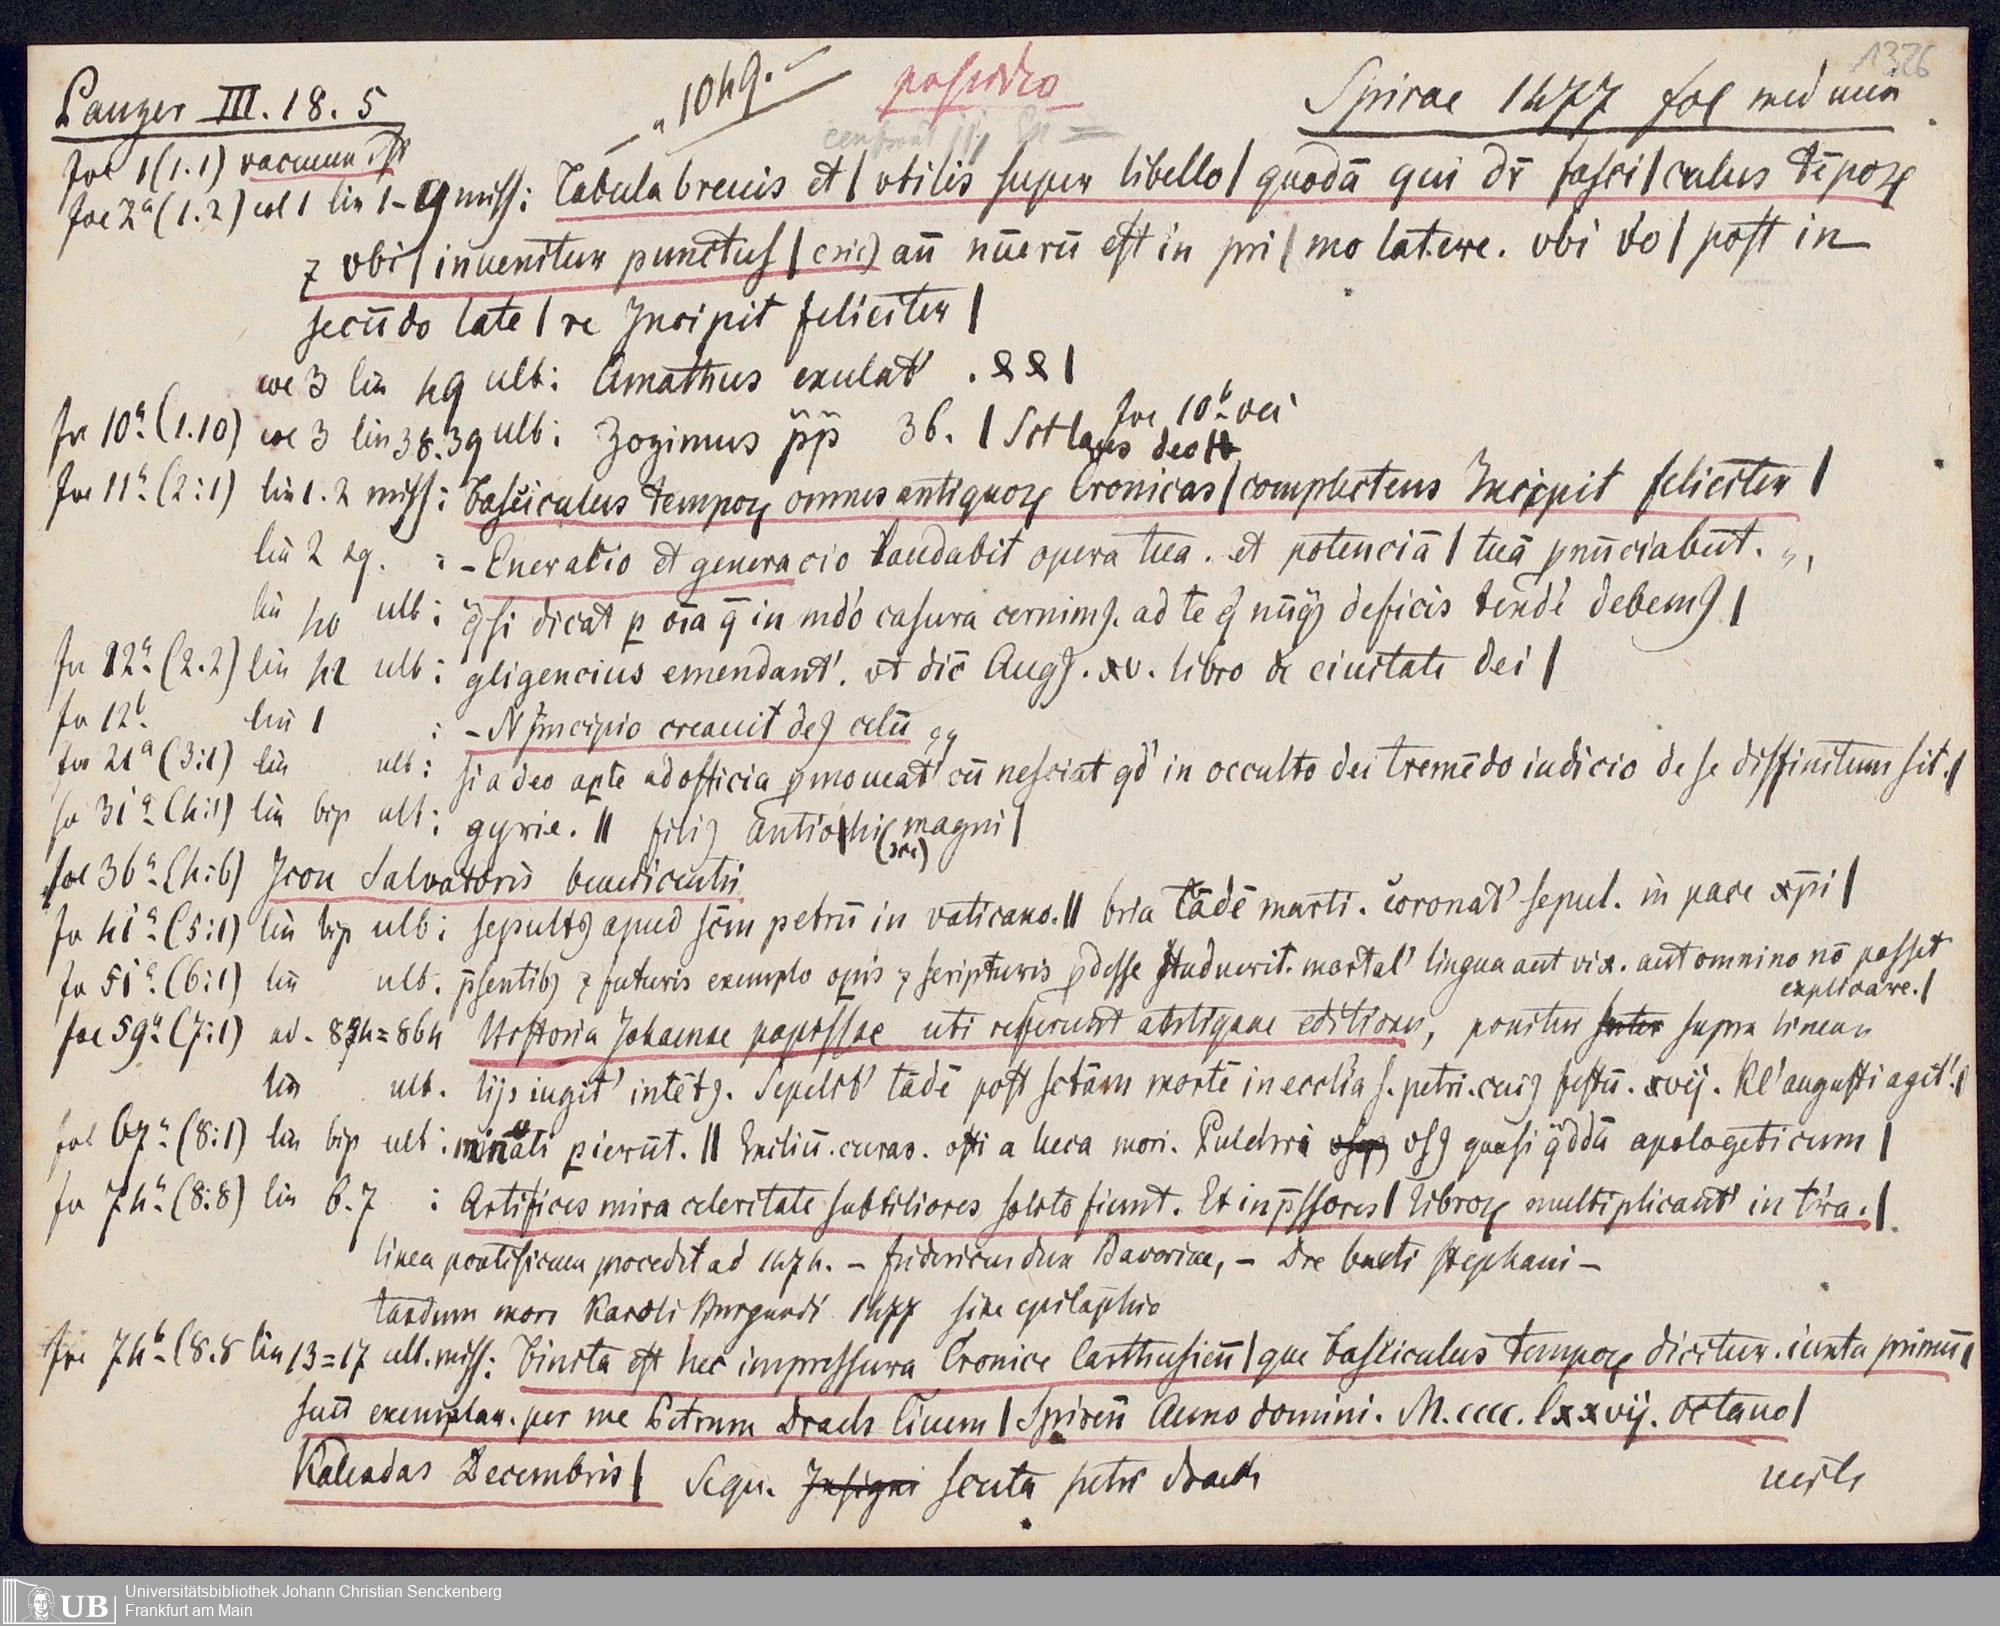 Panzer III. 18. 5
1049.
Spirae 1477 fol med min
1326
fol 1 (1.1) vacuum est
fol 2ª (1.2) col 1 lin 1-9 miss: Tabula breuis et | vtilis super libello | quodā qui dr̄ fasci | culus tēpoꝝ
⁊ vbi | inuenitur punctus | (sic) an̄ nūerū est in pri | mo latere. vbi vo | post in
secūdo late | re Incipit feliciter |
col 3 lin 49 ult: Amathus exulat' . |
fol 10ª (1.10) col 3 lin 38.39 ult: Zozimus pp 36. | Sit laus deo
fol 10ᵇ vac
fol 11ª (2:1) lin 1.2 miss: Fasciculus tempoꝝ omnes antiquoꝝ Cronicas | complectens Incipit feliciter |
lin 2 sq. : -Eneratio et generacio laudabit opera tua. et potenciā | tuā pnūciabūt.
lin 40 ult: q̄si dicat p oīa q̄ in mdo casura cernimꝯ. ad te q nūqꝫ deficis tendē debemꝯ |
fol 12ª (2.2) lin 42 ult: gligencius emendant'. vt dic̄ Augꝯ. xv. libro de ciuitate dei |
fol 12ᵇ lin 1 : -N principio creauit deꝯ celū
fol 21ª (3:1) lin ult: si a deo apte ad officia pmoueat' cū nesciat qd' in occulto dei tremēdo iudicio de se diffinitum sit. |
fol 31ª (4:1) lin bip ult: gyrie. || filiꝯ Antiochi magni |
(sic)
fol 36ª (4:6) Icon Salvatoris benedicentis
fol 41ª (5:1) lin bip ult: sepultꝯ apud scm̄ petrū in vaticano. || bria tādē marti. coronat' sepul. in pace xpi |
fol 51ª (6:1) lin ult. p̄sentibꝯ ⁊ futuris exemplo opis ⁊ scripturis pdesse studuerit. mortal' lingua aut vix. aut omnino nō posset
explicare. |
fol 59ª (7:1) ad. 854=864 Historia Johannae papissae uti referunt antiquae editiones, ponitur supra lineam
lin ult. lijs iugit' intētꝯ. Sepelit' tādē post sctam mortē in ecclia s. petri. cuiꝯ festū. xvij. kl' augusti agit'. |
fol 67ª (8:1) lin bip ult: minati pierūt. || Exiliū. curas. osti a heca mori. Pulchri vsꝯ quasi qddā apologeticum |
fol 74ª (8:8) lin 6.7 : Artifices mira celeritate subtiliores solito fiunt. Et inpssores | libroꝝ multiplicant' in t'ra. |
linea pontificum procedit ad 1474. - fridericus dux Bavariae, - Dre beati stephani -
tandum mors Karoli Burgundi 1477 sine epitaphio
fol 74ᵇ (8.8 lin 13=17 ult. miss: Finita est hec impressura Cronice Carthusien̄ | que Fasciculus tempoꝝ dicitur. iuxta primū |
suū exemplar. per me Petrum Drach Ciuem | Spiren̄ Anno domini. M.cccc.lxxvij. octauo |
Kalendas Decembris | Sequ. scuta petri drach
Universitätsbibliothek Johann Christian Senckenberg
Frankfurt am Main
UB